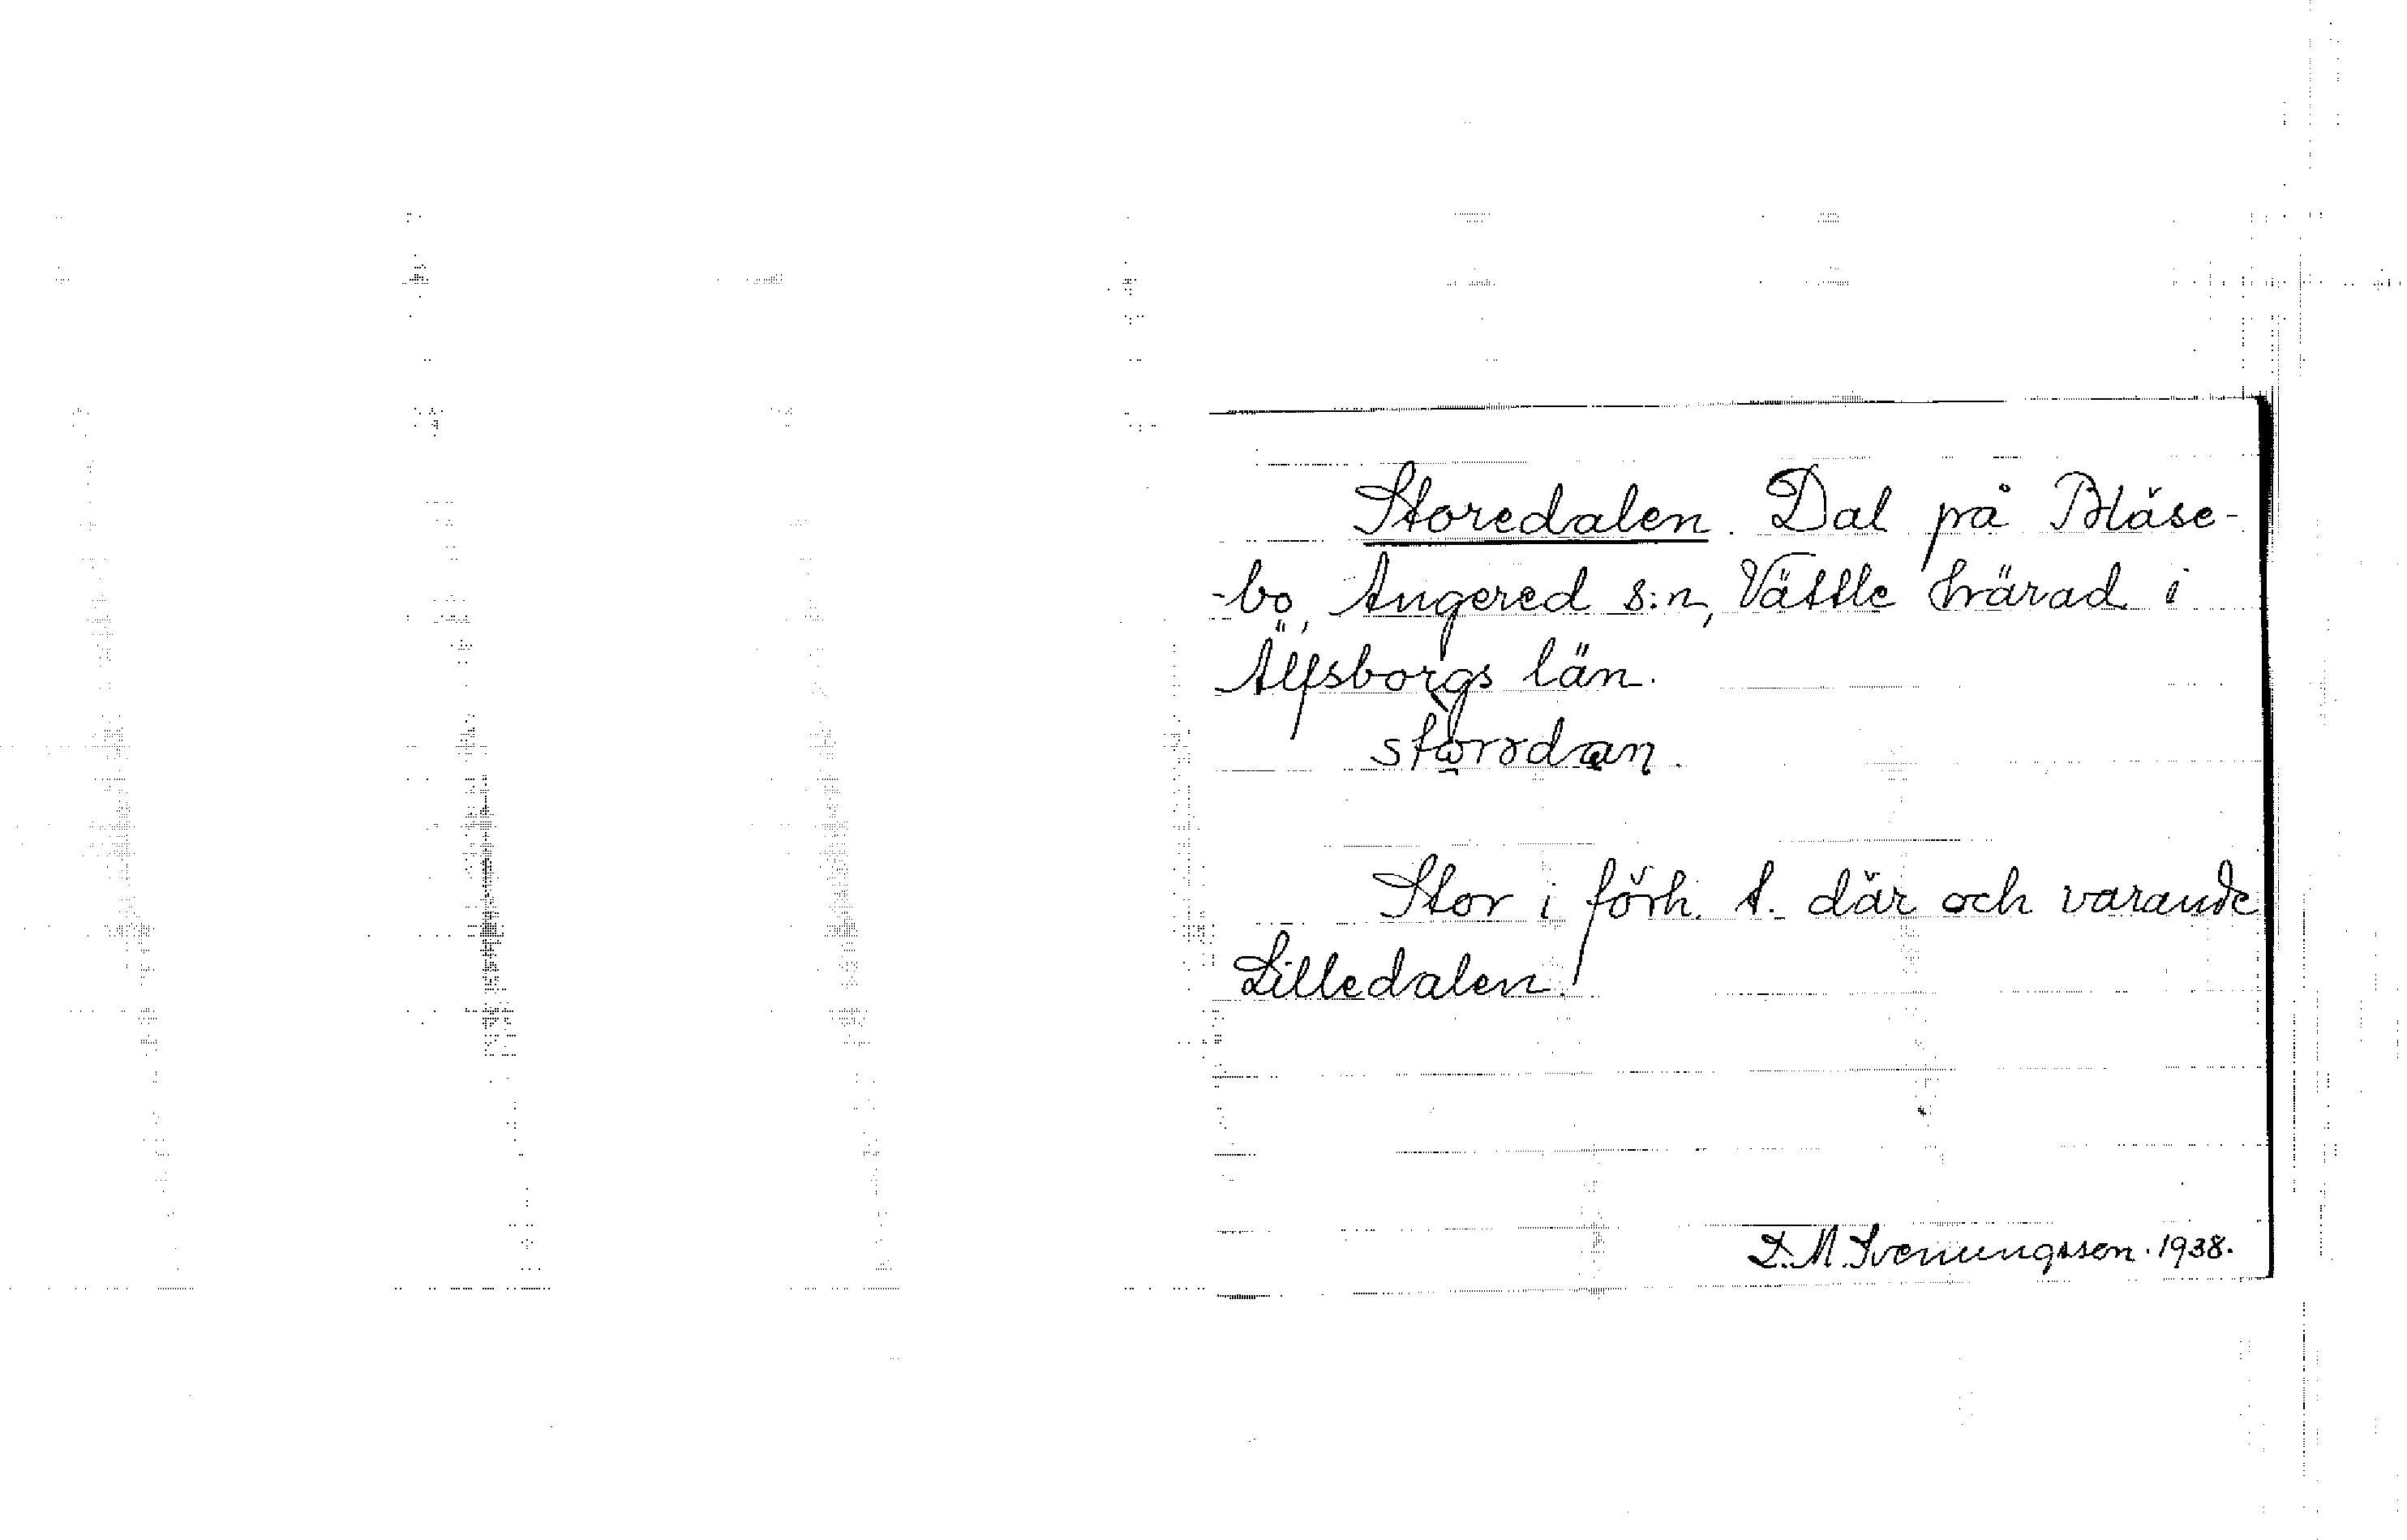 Storedalen. Dal på Bläse-
-bo, Angered s:n, Vättle härad i
Älfsborgs län.
Stor i förh. t. där och varande
Lilledalen.
D. M. Svenungsson. 1938.